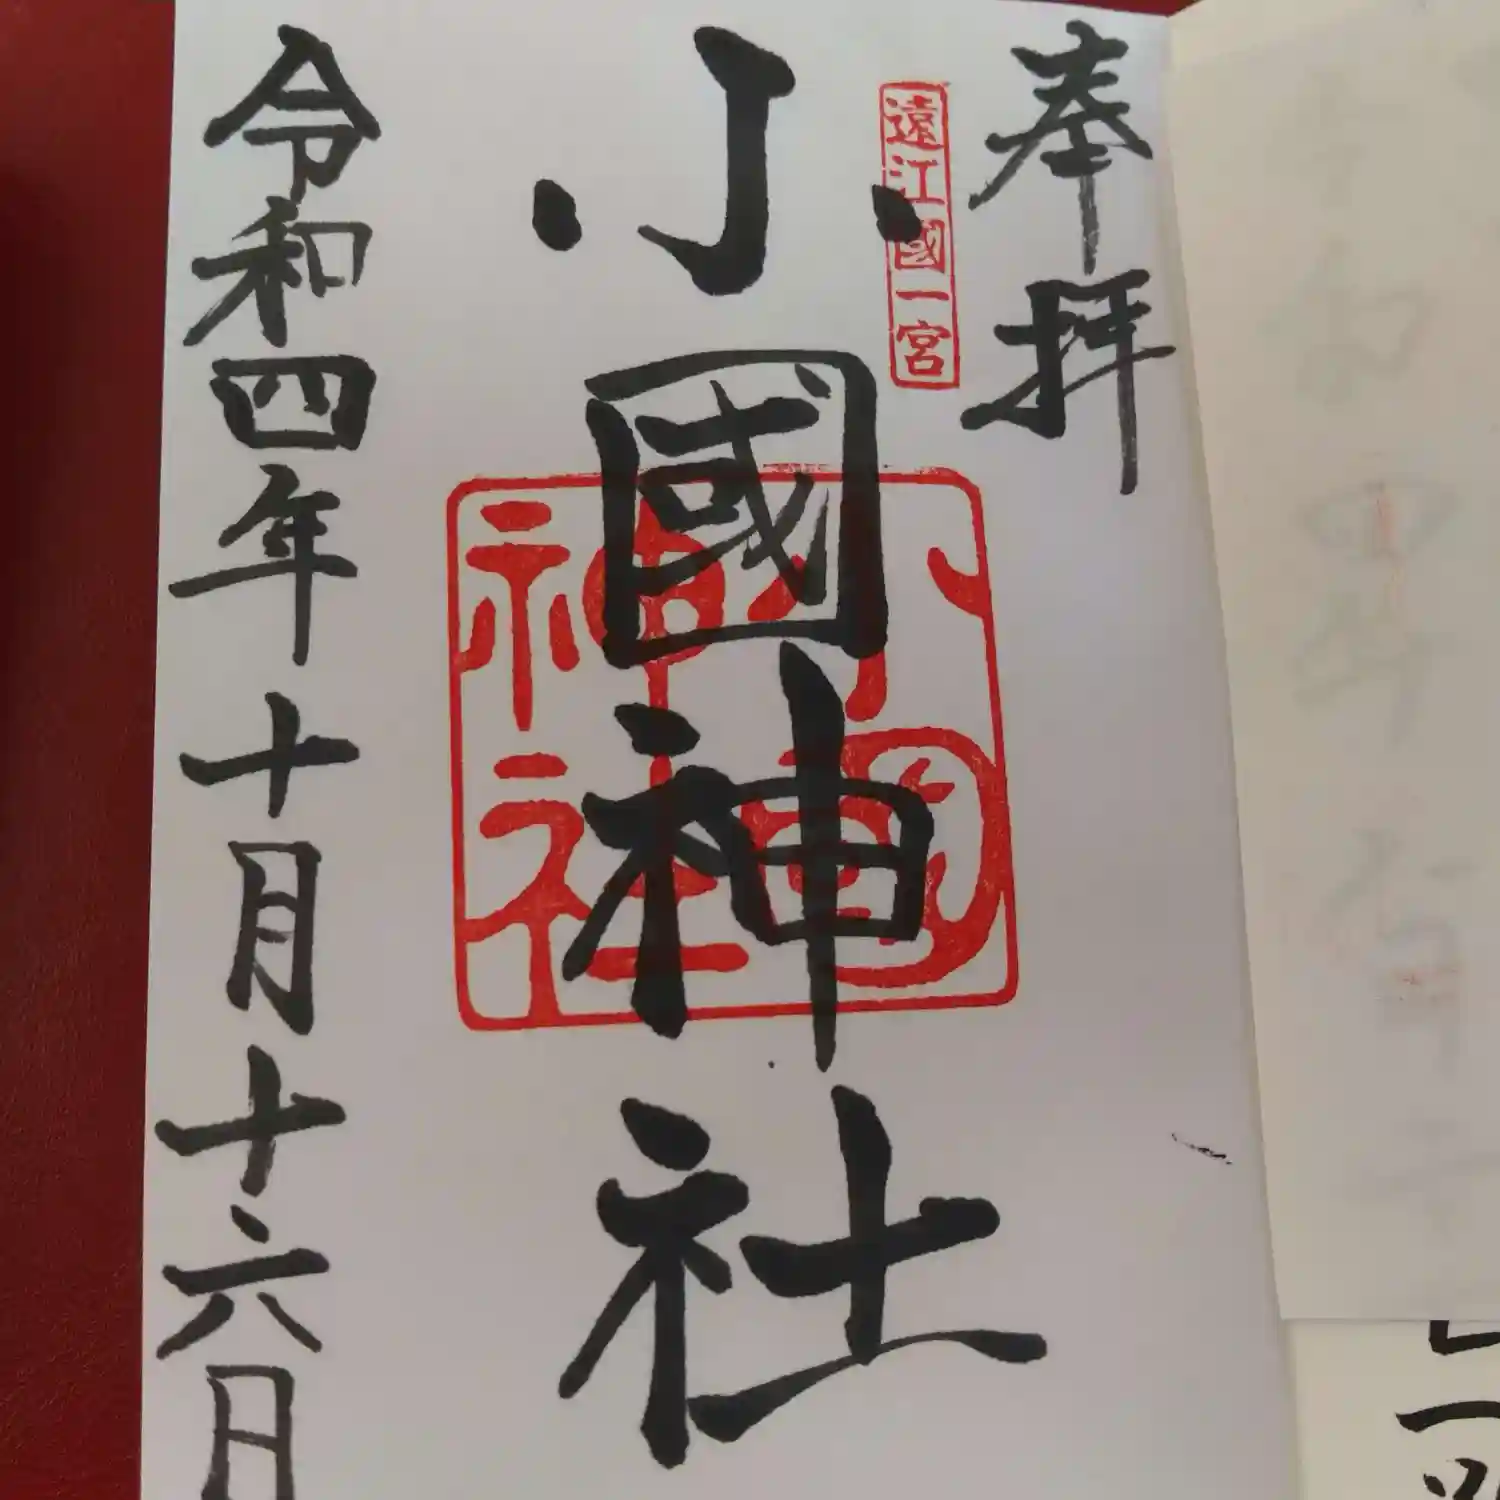 奉拝
遠江國一宮
小國神社
小國
神社
令和四年十月十六日